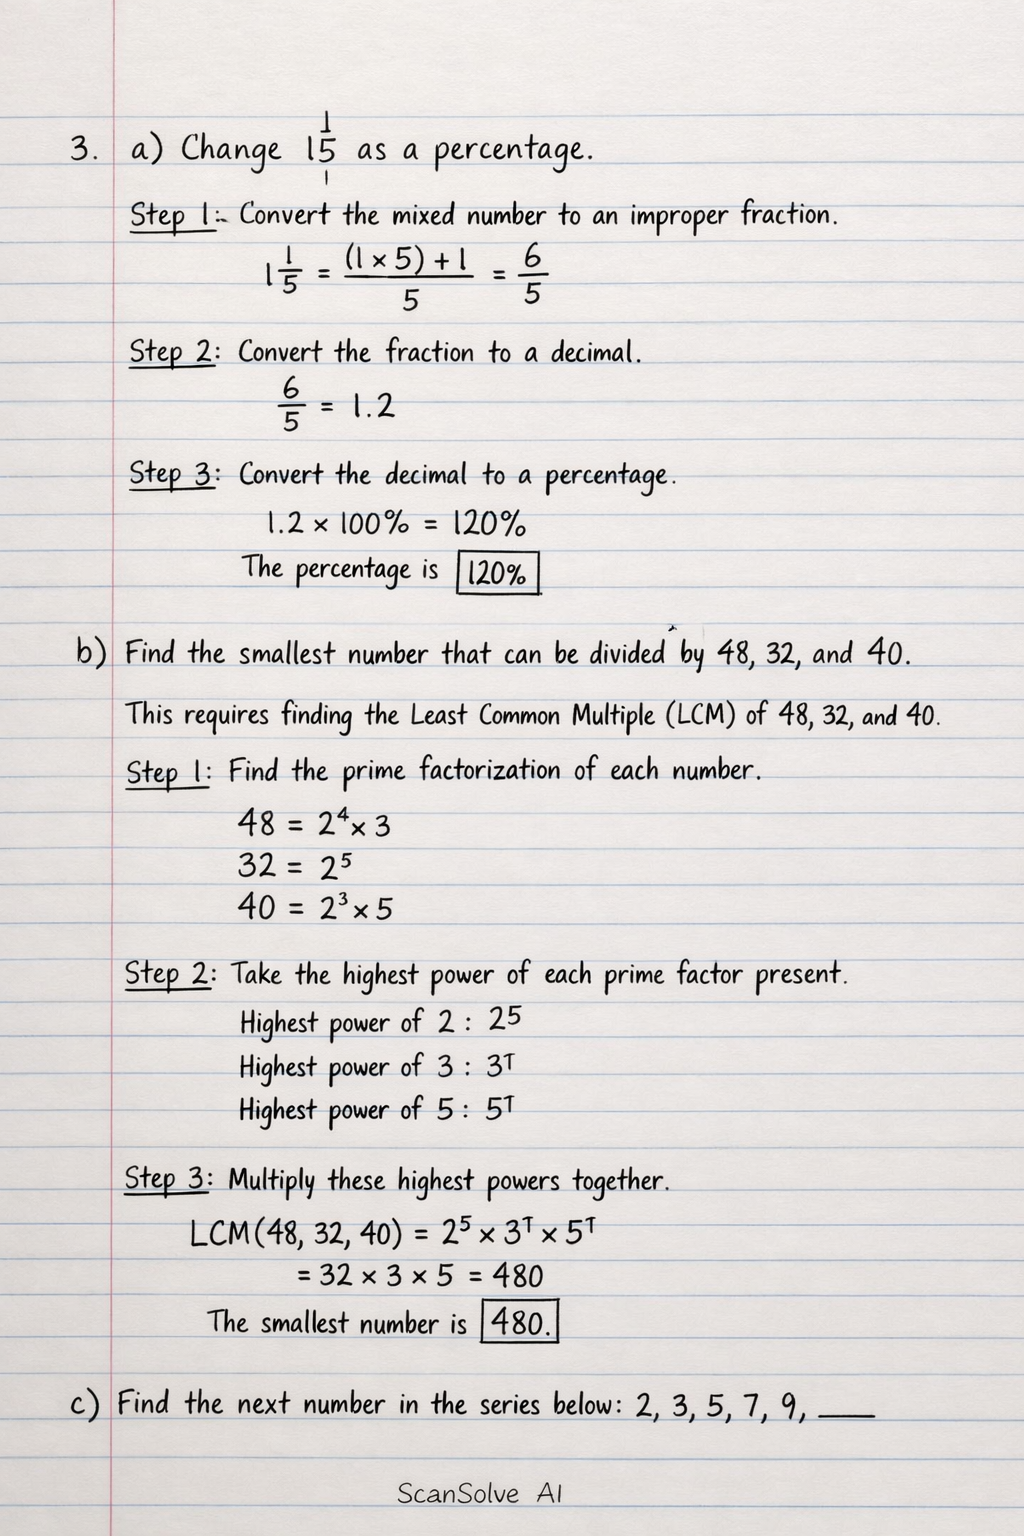 3. a) Change 1 1/5 as a percentage.
Step 1:- Convert the mixed number to an improper fraction.
1 1/5 = (1 × 5) + 1 / 5 = 6/5
Step 2: Convert the fraction to a decimal.
6/5 = 1.2
Step 3: Convert the decimal to a percentage.
1.2 × 100% = 120%
The percentage is 120%
b) Find the smallest number that can be divided by 48, 32, and 40.
This requires finding the Least Common Multiple (LCM) of 48, 32, and 40.
Step 1: Find the prime factorization of each number.
48 = 2⁴ × 3
32 = 2⁵
40 = 2³ × 5
Step 2: Take the highest power of each prime factor present.
Highest power of 2 : 25
Highest power of 3 : 3ᵀ
Highest power of 5 : 5ᵀ
Step 3: Multiply these highest powers together.
LCM(48, 32, 40) = 2⁵ × 3ᵀ × 5ᵀ
= 32 × 3 × 5 = 480
The smallest number is 480.
c) Find the next number in the series below: 2, 3, 5, 7, 9, ___
ScanSolve AI